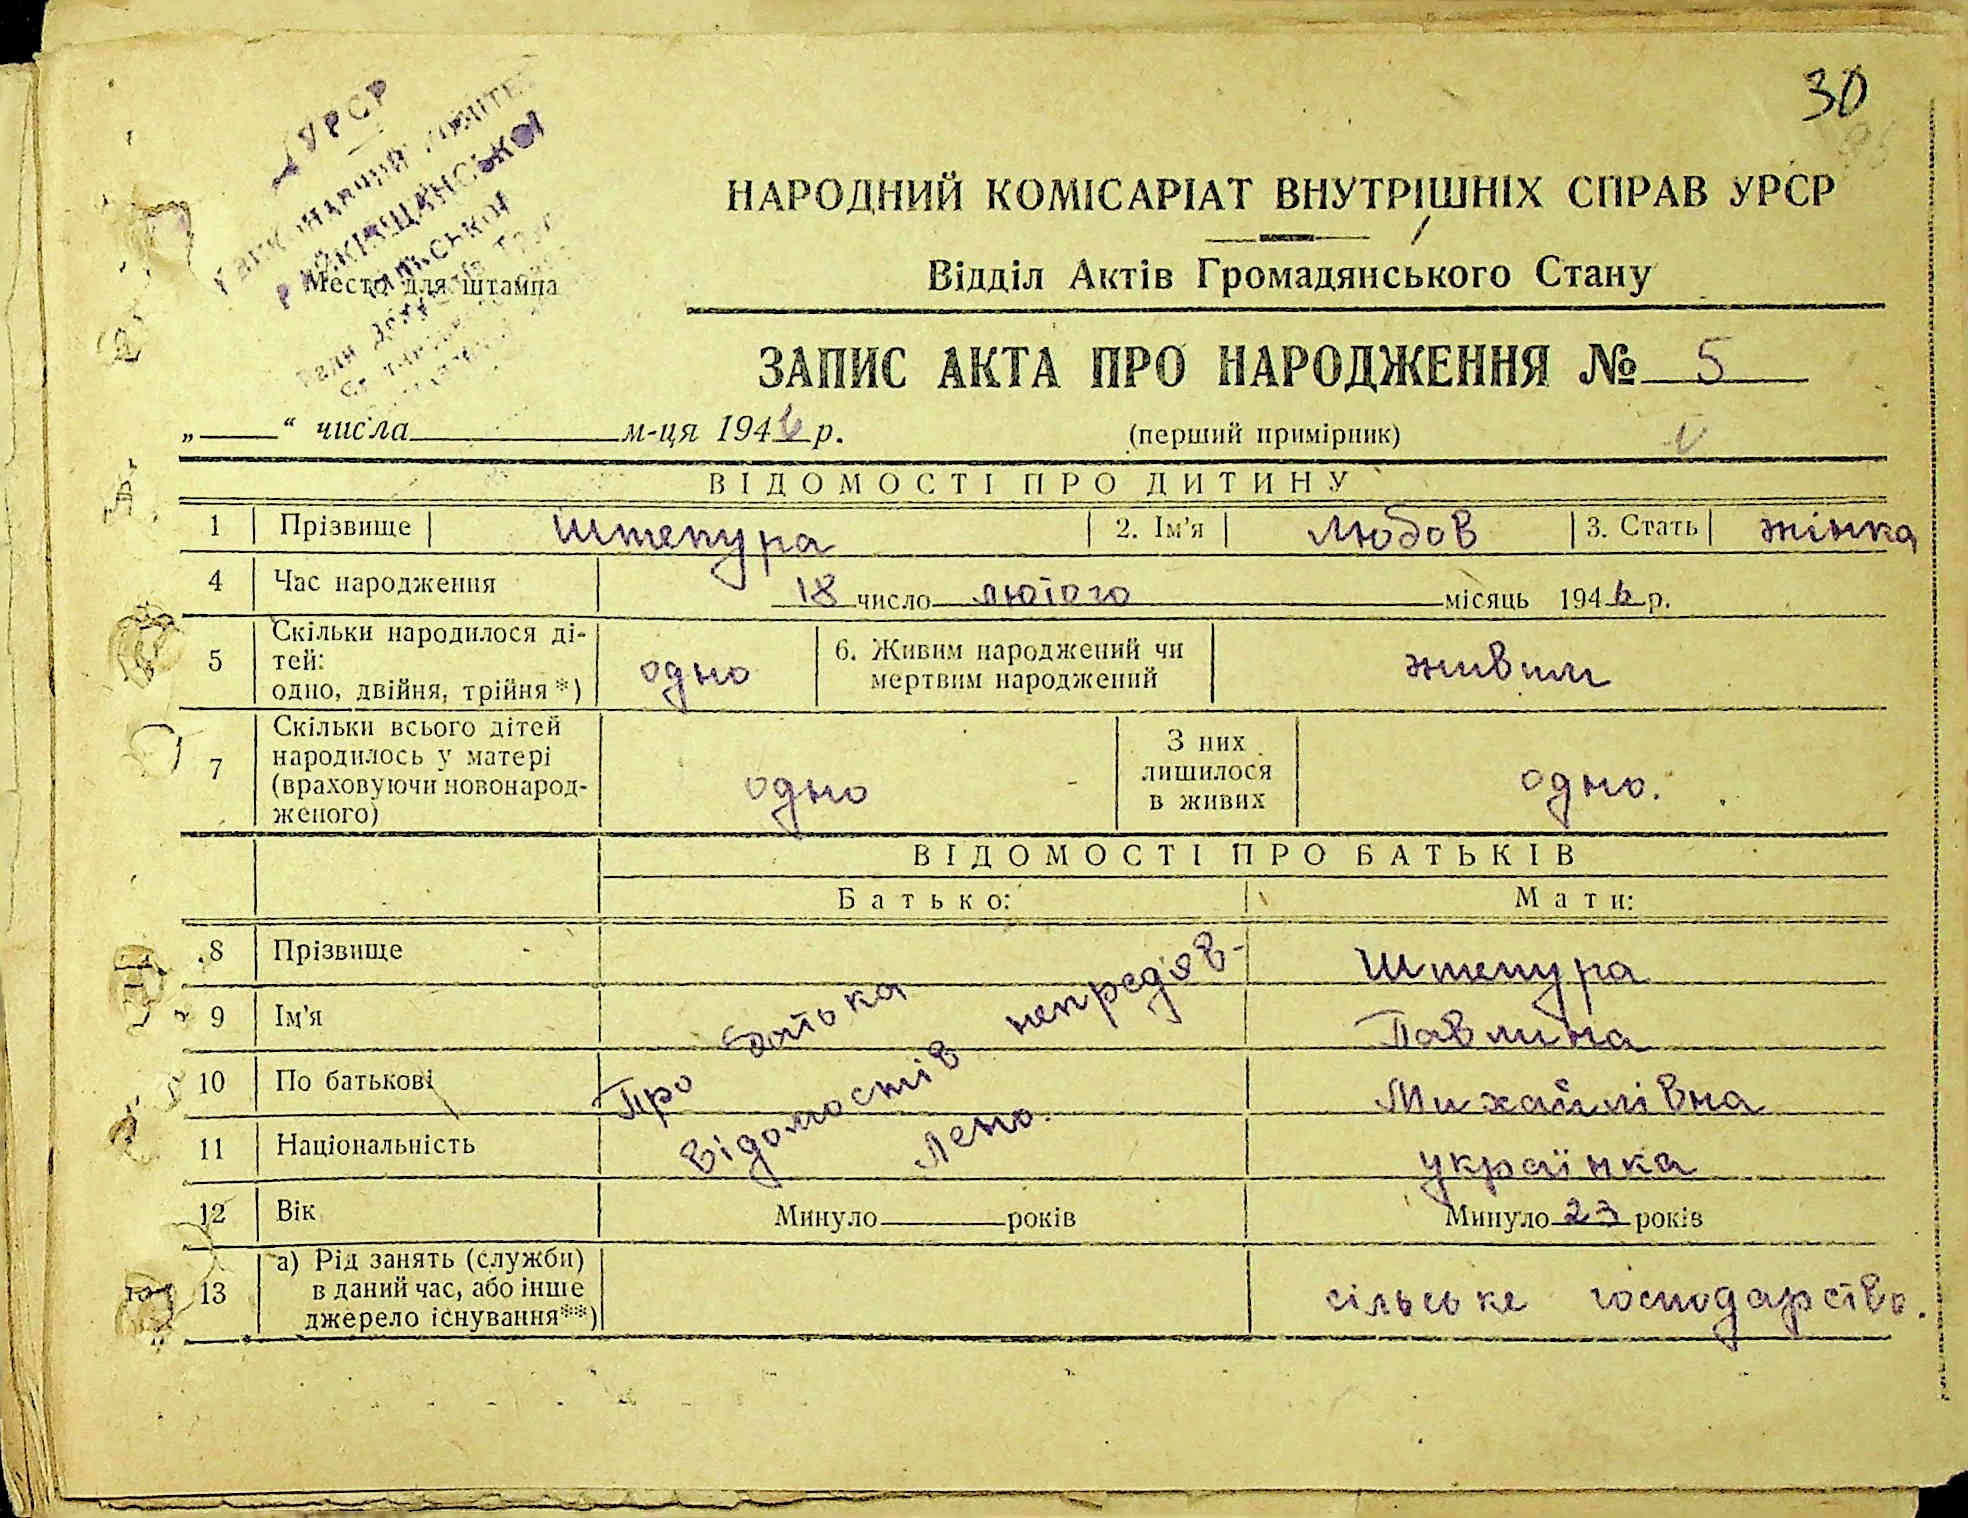 УРСР
30
НАРОДНИЙ КОМІСАРІАТ ВНУТРІШНІХ СПРАВ УРСР
Место для штампа
Відділ Актів Громадянського Стану
ЗАПИС АКТА ПРО НАРОДЖЕННЯ № 5
„ “ числа м-ця 1946 р.
(перший примірник)
ВІДОМОСТІ ПРО ДИТИНУ
1 Прізвище Штепура 2. Ім'я Любов 3. Стать жінка
4 Час народження 18 число лютого місяць 1946 р.
5 Скільки народилося ді-
тей:
одно, двійня, трійня *) одно
6. Живим народжений чи
мертвим народжений живим
7 Скільки всього дітей
народилось у матері
(враховуючи новонарод-
женого) одно
З них
лишилося
в живих одно.
ВІДОМОСТІ ПРО БАТЬКІВ
Батько: Мати:
8 Прізвище Штепура
9 Ім'я Павлина
10 По батькові Михайлівна
11 Національність українка
Про батька
відомостів непредяв-
лено.
12 Вік Минуло років Минуло 23 років
13 а) Рід занять (служби)
в даний час, або інше
джерело існування**) сільське господарство.